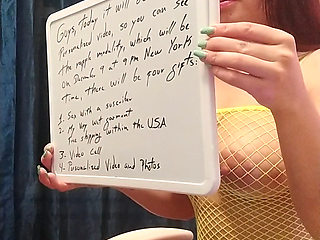 Guys, Today it will be
Personalized video, so you can see
the raffle modality, which will be
on December 9 at 9 pm New York
Time, there will be four gifts:
1. Sex with a suscriber
2. My Very wet garment
Free shipping within the USA
3. Video Call
4. Personalized Video and Photos